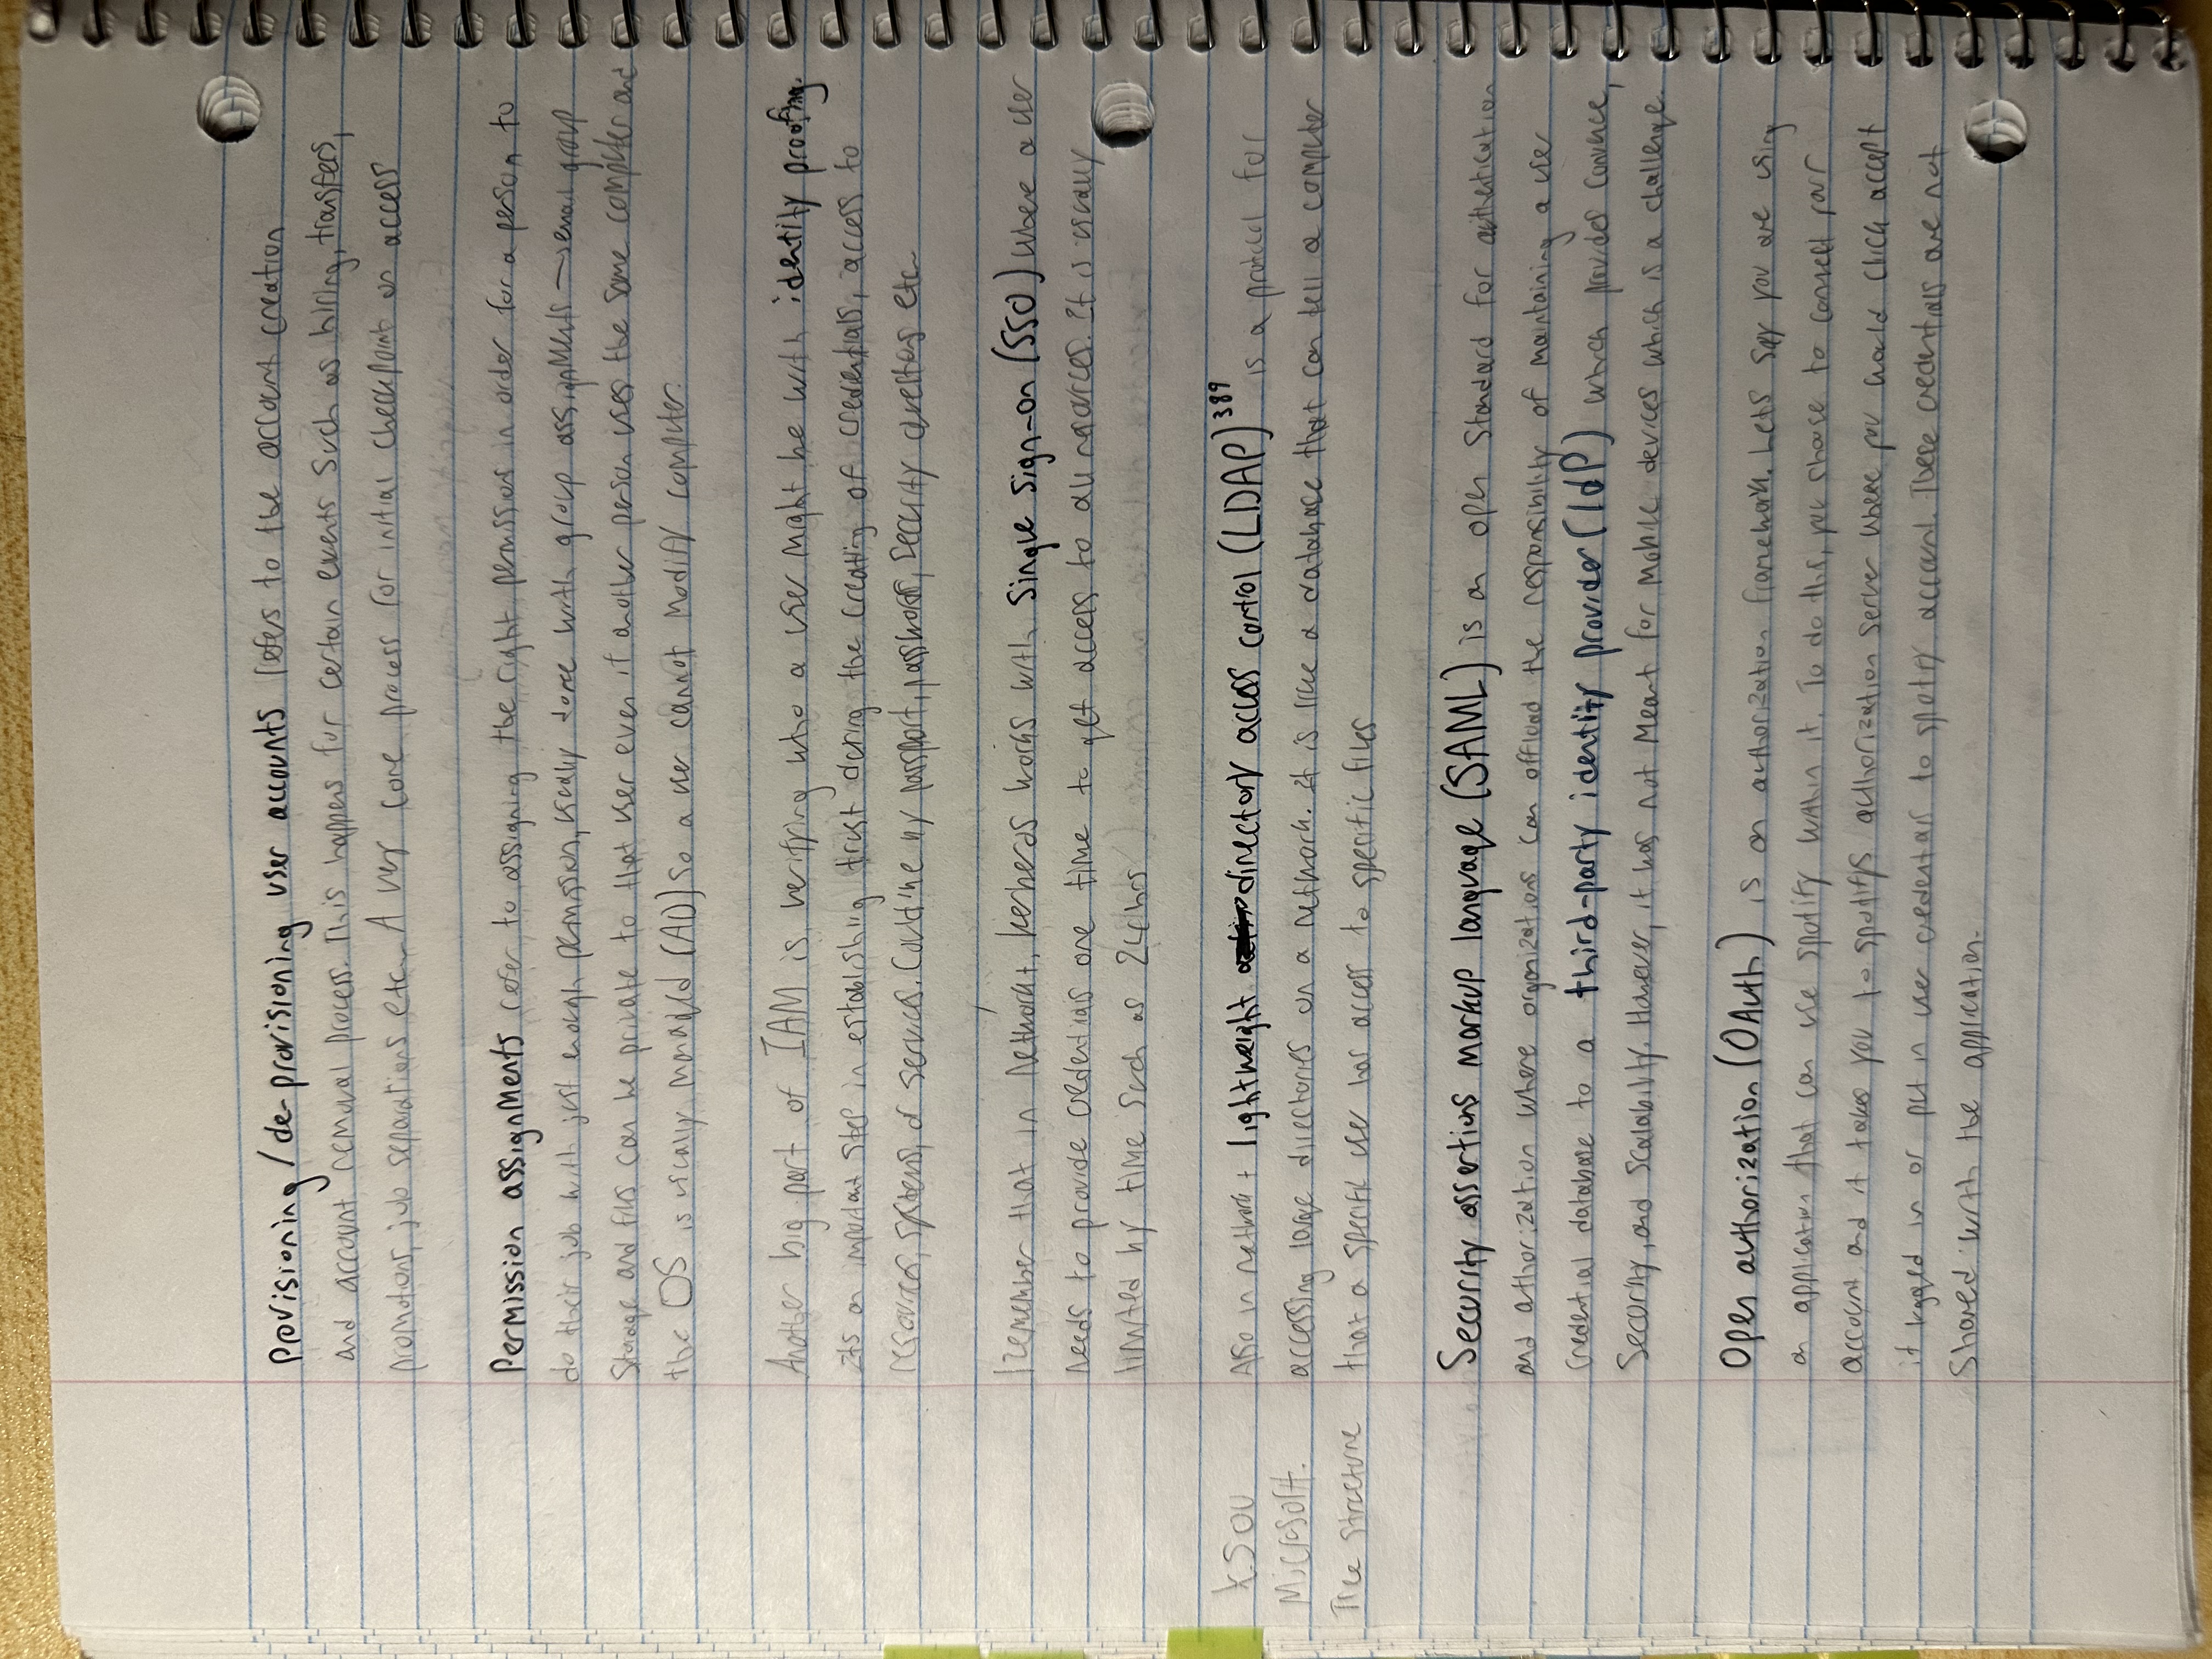 Provisioning/de-provisioning user accounts refers to the account creation
and account removal process. This happens for certain events such as hiring, transfers,
promotions, job separations etc. A very core process for initial checkpoint on access
Permission assignments refer to assigning the right permissions in order for a person to
do their job with just enough permission, usually done with group assignments → email group
Storage and files can be private to that user even if another person uses the same computer and
the OS is usually managed (AD) so a user cannot modify computer.
Another big part of IAM is verifying who a user might be with identity proofing.
Its an important step in establishing trust during the creating of credientials, access to
resources, systems, or services. Could be by passport, passwords, security questions etc.
Remember that in Network+, kerberos works with Single sign-on (SSO) where a user
needs to provide credentials one time to get access to all resources. It is usually
limited by time such as 24hrs
Also in network + lightweight directory access control (LDAP)³⁸⁹ is a protocol for
X.500
Microsoft.
Tree structure
accessing large directories on a network. It is like a database that can tell a computer
that a specific user has access to specific files
Security assertions markup language (SAML) is an open standard for authentication
and authorization where organizations can offload the responsibility of maintaining a user
credential database to a third-party identity provider (IdP) which provides
security, and scalability. However, it was not meant for mobile devices which is a challenge.
Open authorization (OAuth) is an authorization framework. Lets say you are using
an application that can use spotify within it. To do this, you choose to connect your
account and it takes you to spotifys authorization server where you would click accept
if logged in or put in user credentials to spotify account. These credentials are not
shared with the application.